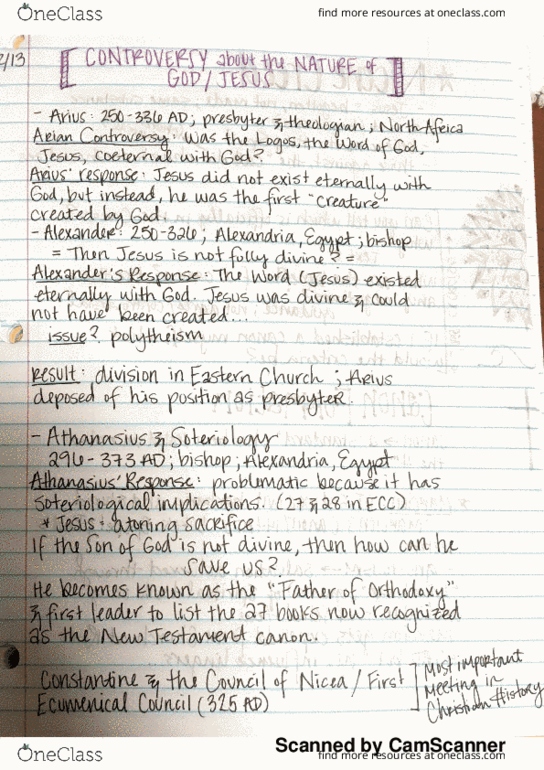 OneClass
find more resources at oneclass.com
2/13
[CONTROVERSY about the NATURE of
GOD/JESUS]
- Arius: 250-336 AD; presbyter & theologian; North Africa
Arian Controversy: Was the Logos, the Word of God,
Jesus, coeternal with God?
Arius' response: Jesus did not exist eternally with
God, but instead, he was the first "creature"
created by God.
- Alexander: 250-326; Alexandria, Egypt; bishop
= Then Jesus is not fully divine? =
Alexander's Response: The Word (Jesus) existed
eternally with God. Jesus was divine & could
not have been created...
issue? polytheism
result: division in Eastern Church; Arius
deposed of his position as presbyter.
- Athanasius & Soteriology
296-373 AD; bishop; Alexandria, Egypt
Athanasius' Response: problematic because it has
soteriological implications. (27 & 28 in ECC)
* Jesus: atoning sacrifice
If the Son of God is not divine, then how can he
save us?
He becomes known as the "Father of Orthodoxy"
& first leader to list the 27 books now recognized
as the New Testament canon.
Constantine & the Council of Nicea / First
Ecumenical Council (325 AD)
] Most important
Meeting in
Christian History
Scanned by CamScanner
OneClass
find more resources at oneclass.com